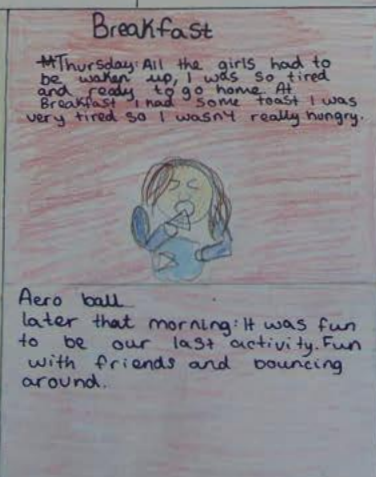 Breakfast
Thursday: All the girls had to
be waken up, I was so tired
and ready to go home. At
Breakfast I had some toast I was
very tired so I wasn't really hungry.
Aero ball
later that morning: It was fun
to be our last activity. Fun
with friends and bouncing
around.